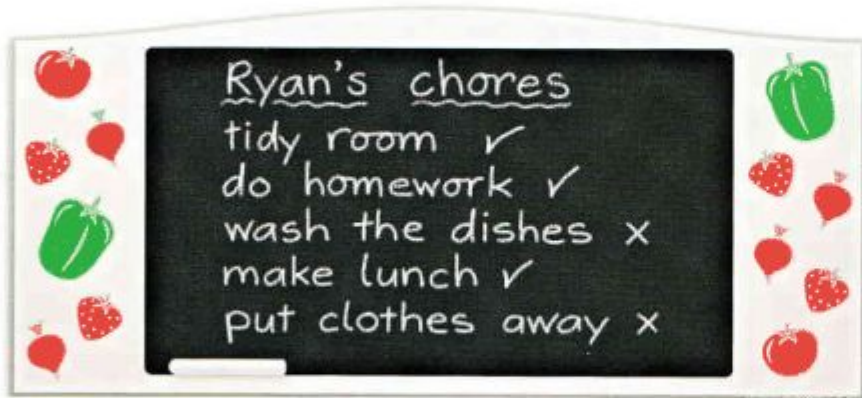 Ryan's chores
tidy room ✓
do homework ✓
wash the dishes x
make lunch ✓
put clothes away x